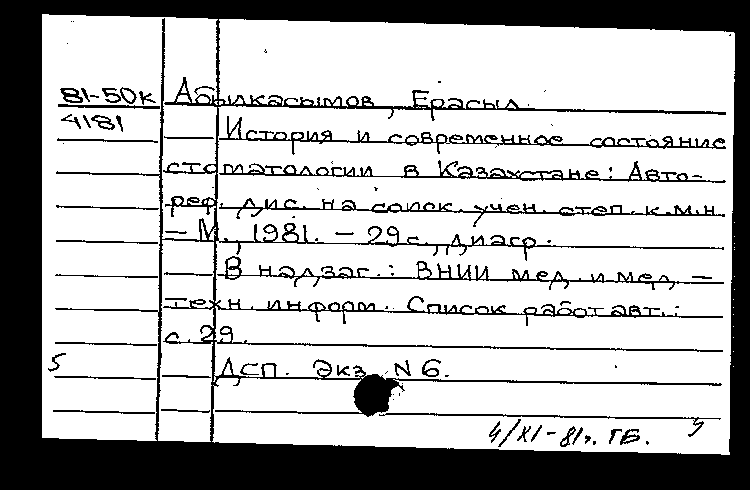 81-50К Абылкасымов, Ерасыл.
4181 История и современное состояние
стоматологии в Казахстане: Авто-
реф. дис. на соиск. учен. степ. к.м.н.
- М., 1981. - 29 с., диагр.
В надзаг.: ВНИИ мед. и мед.-
техн. информ. Список работ авт.:
с. 29.
5 ДСП. Экз. N 6.
4/XI-81г. ГБ.